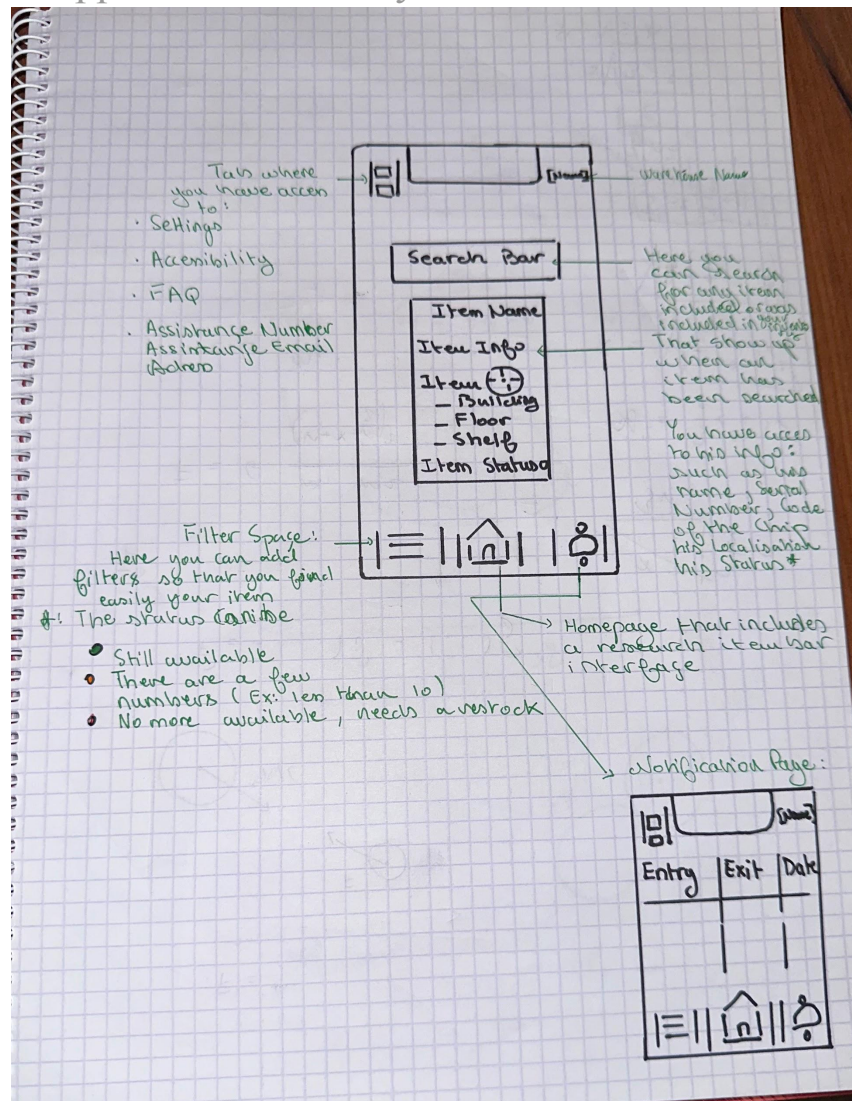 Tabs where
you have acces
to:
· Settings
· Accessibility
· FAQ
· Assistance Number
Assistance Email
Adress
[Name]
Warehouse Name
Search Bar
Here you
can search
for any item
included or was
included in
That show up
when an
item has
been searched
Item Name
Item Info
Item
- Building
- Floor
- Shelf
Item Status
You have acces
to his info:
such as his
name, Serial
Number, Code
of the Chip
his Localisation
his Status*
Filter Space:
Here you can add
filters so that you find
easily your item
*: The status can be
Still available
There are a few
numbers (Ex: less than 10)
No more available, needs a restock
Homepage that includes
a research item bar
interface
Notification Page:
[Name]
Entry Exit Date